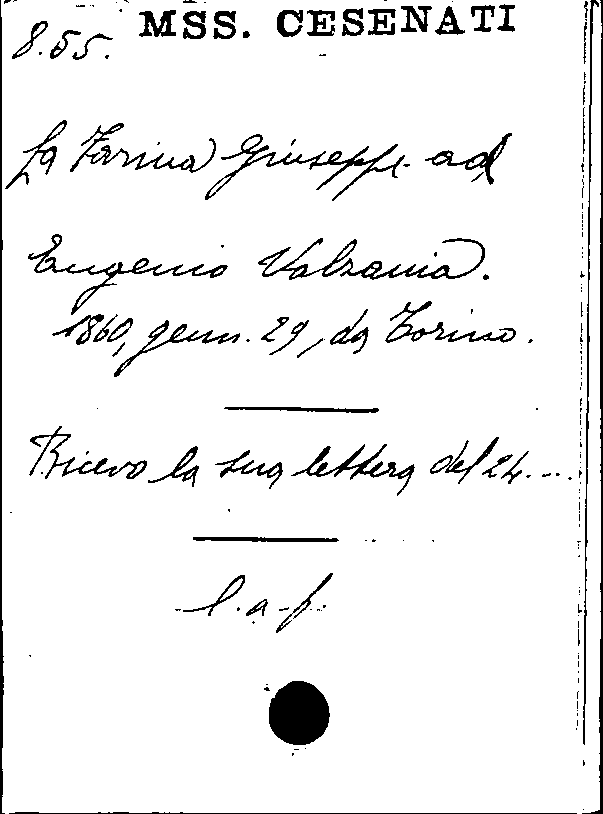 MSS. CESENATI
8.55.
La Farina Giuseppe ad
Eugenio Valzania.
1860, genn. 29, da Torino.
Ricevo la sua lettera del 24....
l.a.f.